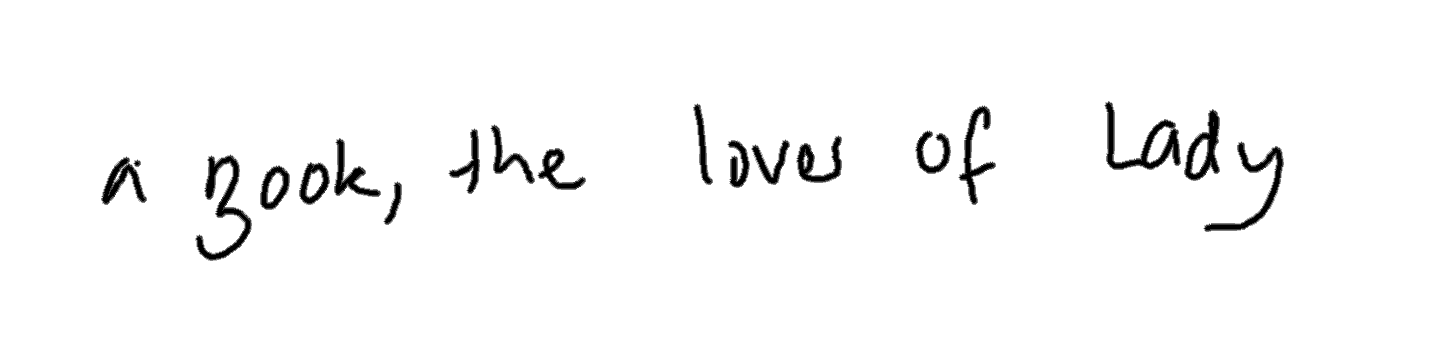 a Book, the loves of Lady